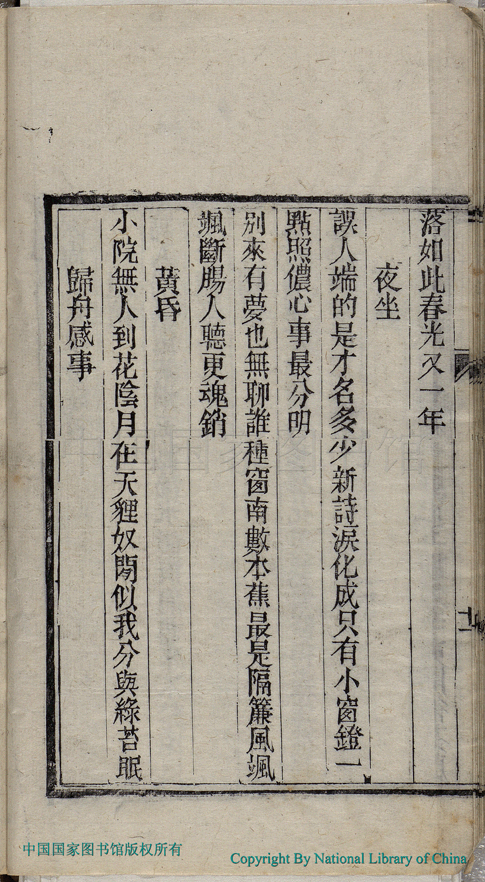 落如此春光又一年
夜坐
誤人端的是才名多少新詩淚化成只有小窗鐙一
點照儂心事最分明
別來有夢也無聊誰種窗南數本蕉最是隔簾風颯
颯斷腸人聽更魂銷
黃昏
小院無人到花陰月在天貍奴閒似我分與綠苔眠
歸舟感事
中国国家图书馆版权所有
Copyright By National Library of China